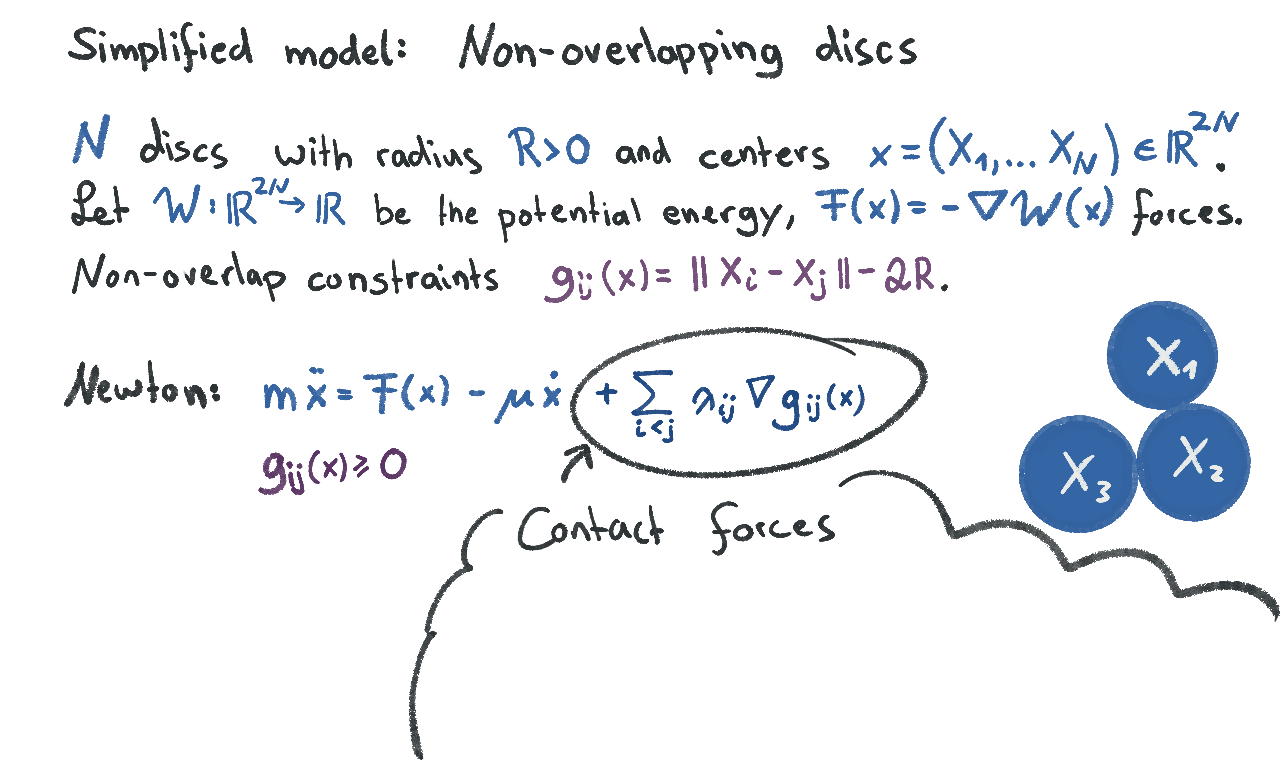 Simplified model: Non-overlapping discs
N discs with radius R>0 and centers x=(X₁,... X_N) ∈ ℝ²ᴺ.
Let W: ℝ²ᴺ→ ℝ be the potential energy, F(x) = -∇W(x) forces.
Non-overlap constraints g_ij(x) = ||X_i - X_j|| - 2R.
Newton: mẍ = F(x) - μẋ + ∑_{i<j} λ_ij ∇g_ij(x)
g_ij(x) ≥ 0
Contact forces
X₁
X₂
X₃